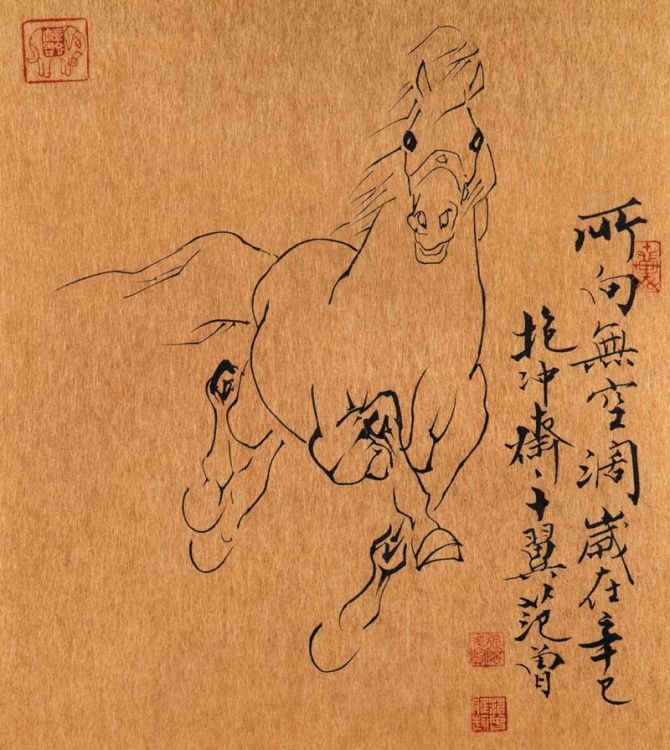 所向無空阔歲在辛巳
抱冲斋、十翼范曾